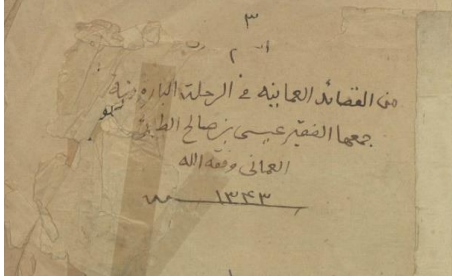 ٣
من القصائد العمانيه في الرحلة البارونية
جمعها الفقير عيسى بن صالح الطائي
العماني وفقه الله
١٣٤٣